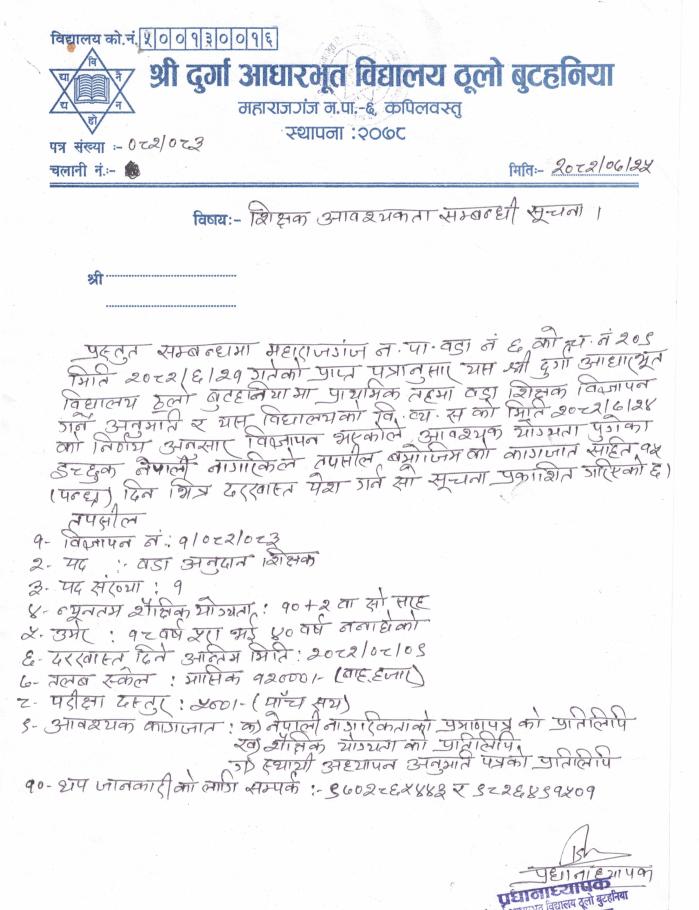 विद्यालय को.नं. ५००१३००१६
वि
द्या ने
ध न
हो
श्री दुर्गा आधारभूत विद्यालय ठूलो बुटहनिया
महाराजगंज न.पा.-६, कपिलवस्तु
स्थापना :२०७८
पत्र संख्या :- ०८२/०८३
चलानी नं.:-
मितिः- २०८२/०७/२५
विषयः- शिक्षक आवश्यकता सम्बन्धी सूचना ।
श्री
प्रस्तुत सम्बन्धमा महाराजगंज न.पा. वडा नं ६ को च. नं २०९
मिति २०८२/६/२१ गतेको प्राप्त पत्रानुसार यस श्री दुर्गा आधारभूत
विद्यालय ठूलो बुटहनियामा प्राथमिक तहमा वडा शिक्षक विज्ञापन
गर्ने अनुमती र यस विद्यालयको वि. व्य. स को मिति २०८२/७/२४
को निर्णय अनुसार विज्ञापन भएकोले आवश्यक योग्यता पुगेका
इच्छुक नेपाली नागरिकले तपसील बमोजिमको कागजात सहित १५
(पन्ध्र) दिन भित्र दरखास्त पेश गर्न सो सूचना प्रकाशित गरिएको छ।
तपसील
१- विज्ञापन नं : १/०८२/०८३
२- पद :- वडा अनुदान शिक्षक
३- पद संख्या : १
४- न्यूनतम शैक्षिक योग्यता : १०+२ वा सो सरह
५- उमेर : १८ वर्ष पुरा भई ४० वर्ष ननाघेको
६- दरखास्त दिने अन्तिम मिति : २०८२/०८/०९
७- तलब स्केल : मासिक १२०००।- (बाह्र हजार)
८- परीक्षा दस्तुर : ५००।- (पाँच सय)
९- आवश्यक कागजात : क) नेपाली नागरिकताको प्रमाणपत्र को प्रतिलिपि
ख) शैक्षिक योग्यता को प्रतिलिपि
ग) स्थायी अध्यापन अनुमति पत्रको प्रतिलिपि
१०- थप जानकारी को लागि सम्पर्क :- ९७०२८६५४४३ र ९८२६४९१५०१
प्रधानाध्यापक
प्रधानाध्यापक
आधारभूत विद्यालय ठूलो बुटहनिया